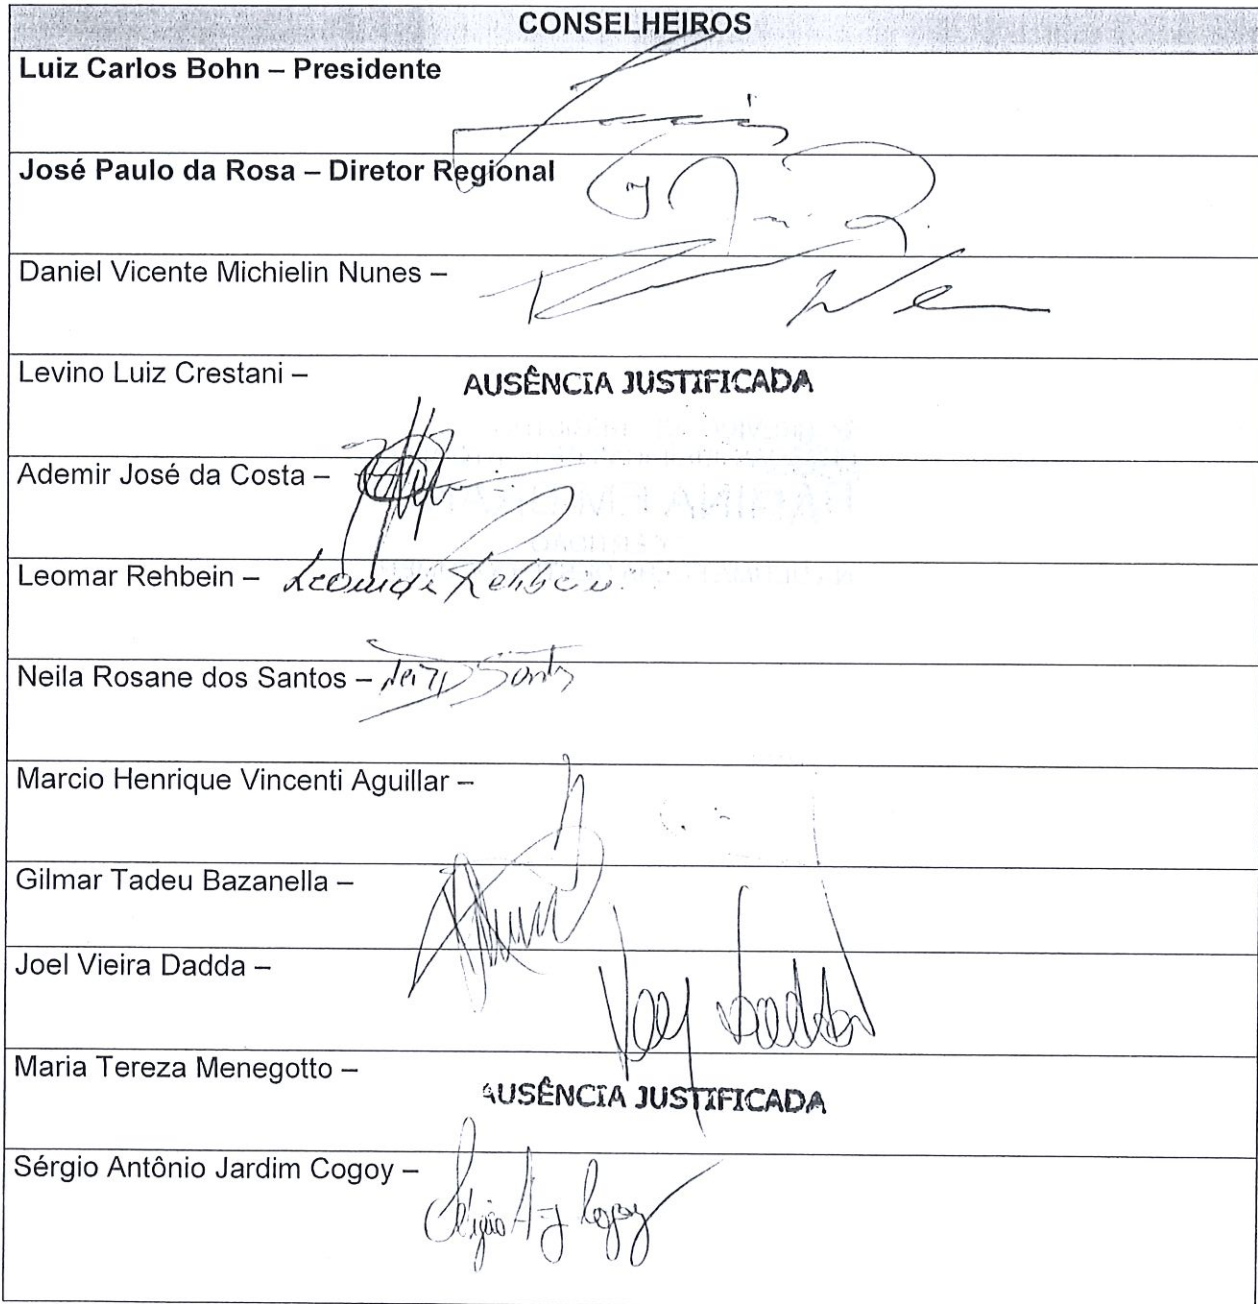 CONSELHEIROS
Luiz Carlos Bohn – Presidente
José Paulo da Rosa – Diretor Regional
Daniel Vicente Michielin Nunes –
Levino Luiz Crestani – AUSÊNCIA JUSTIFICADA
Ademir José da Costa –
Leomar Rehbein – Leomar Rehbein
Neila Rosane dos Santos –
Marcio Henrique Vincenti Aguillar –
Gilmar Tadeu Bazanella –
Joel Vieira Dadda –
Maria Tereza Menegotto –
AUSÊNCIA JUSTIFICADA
Sérgio Antônio Jardim Cogoy –